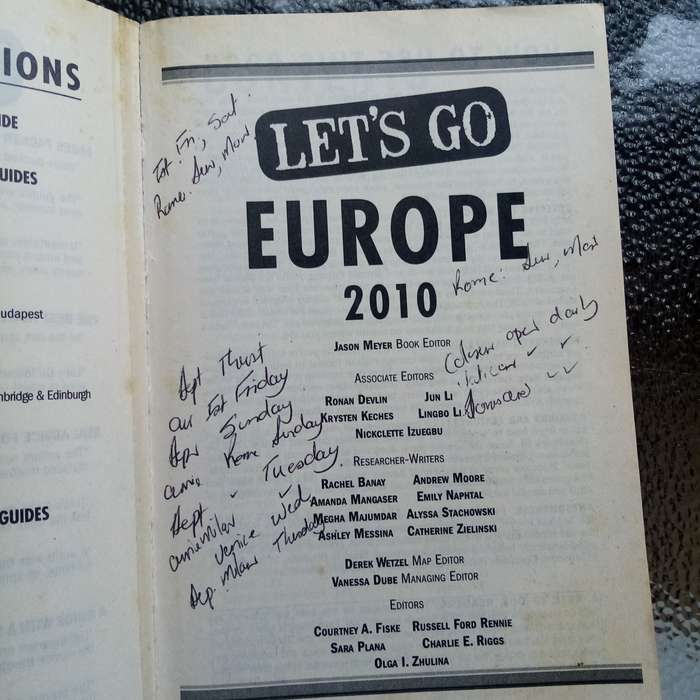 IONS
IDE
UIDES
udapest
mbridge & Edinburgh
GUIDES
Ist. Fri, Sat.
Rome: Sun, Mon.
LET'S GO
EUROPE
2010
Rome: Sun, Mon
JASON MEYER BOOK EDITOR
open daily
ASSOCIATE EDITORS
RONAN DEVLIN JUN LI
KRYSTEN KECHES LINGBO LI
NICKCLETTE IZUEGBU
Dept Thurst
arr Ist Friday
Dep Sunday
arrive Rome Sunday
Dept Tuesday
arrive Milan
Venice Wed
Dep. Milan Thursday
RESEARCHER-WRITERS
RACHEL BANAY ANDREW MOORE
AMANDA MANGASER EMILY NAPHTAL
MEGHA MAJUMDAR ALYSSA STACHOWSKI
ASHLEY MESSINA CATHERINE ZIELINSKI
DEREK WETZEL MAP EDITOR
VANESSA DUBE MANAGING EDITOR
EDITORS
COURTNEY A. FISKE RUSSELL FORD RENNIE
SARA PLANA CHARLIE E. RIGGS
OLGA I. ZHULINA